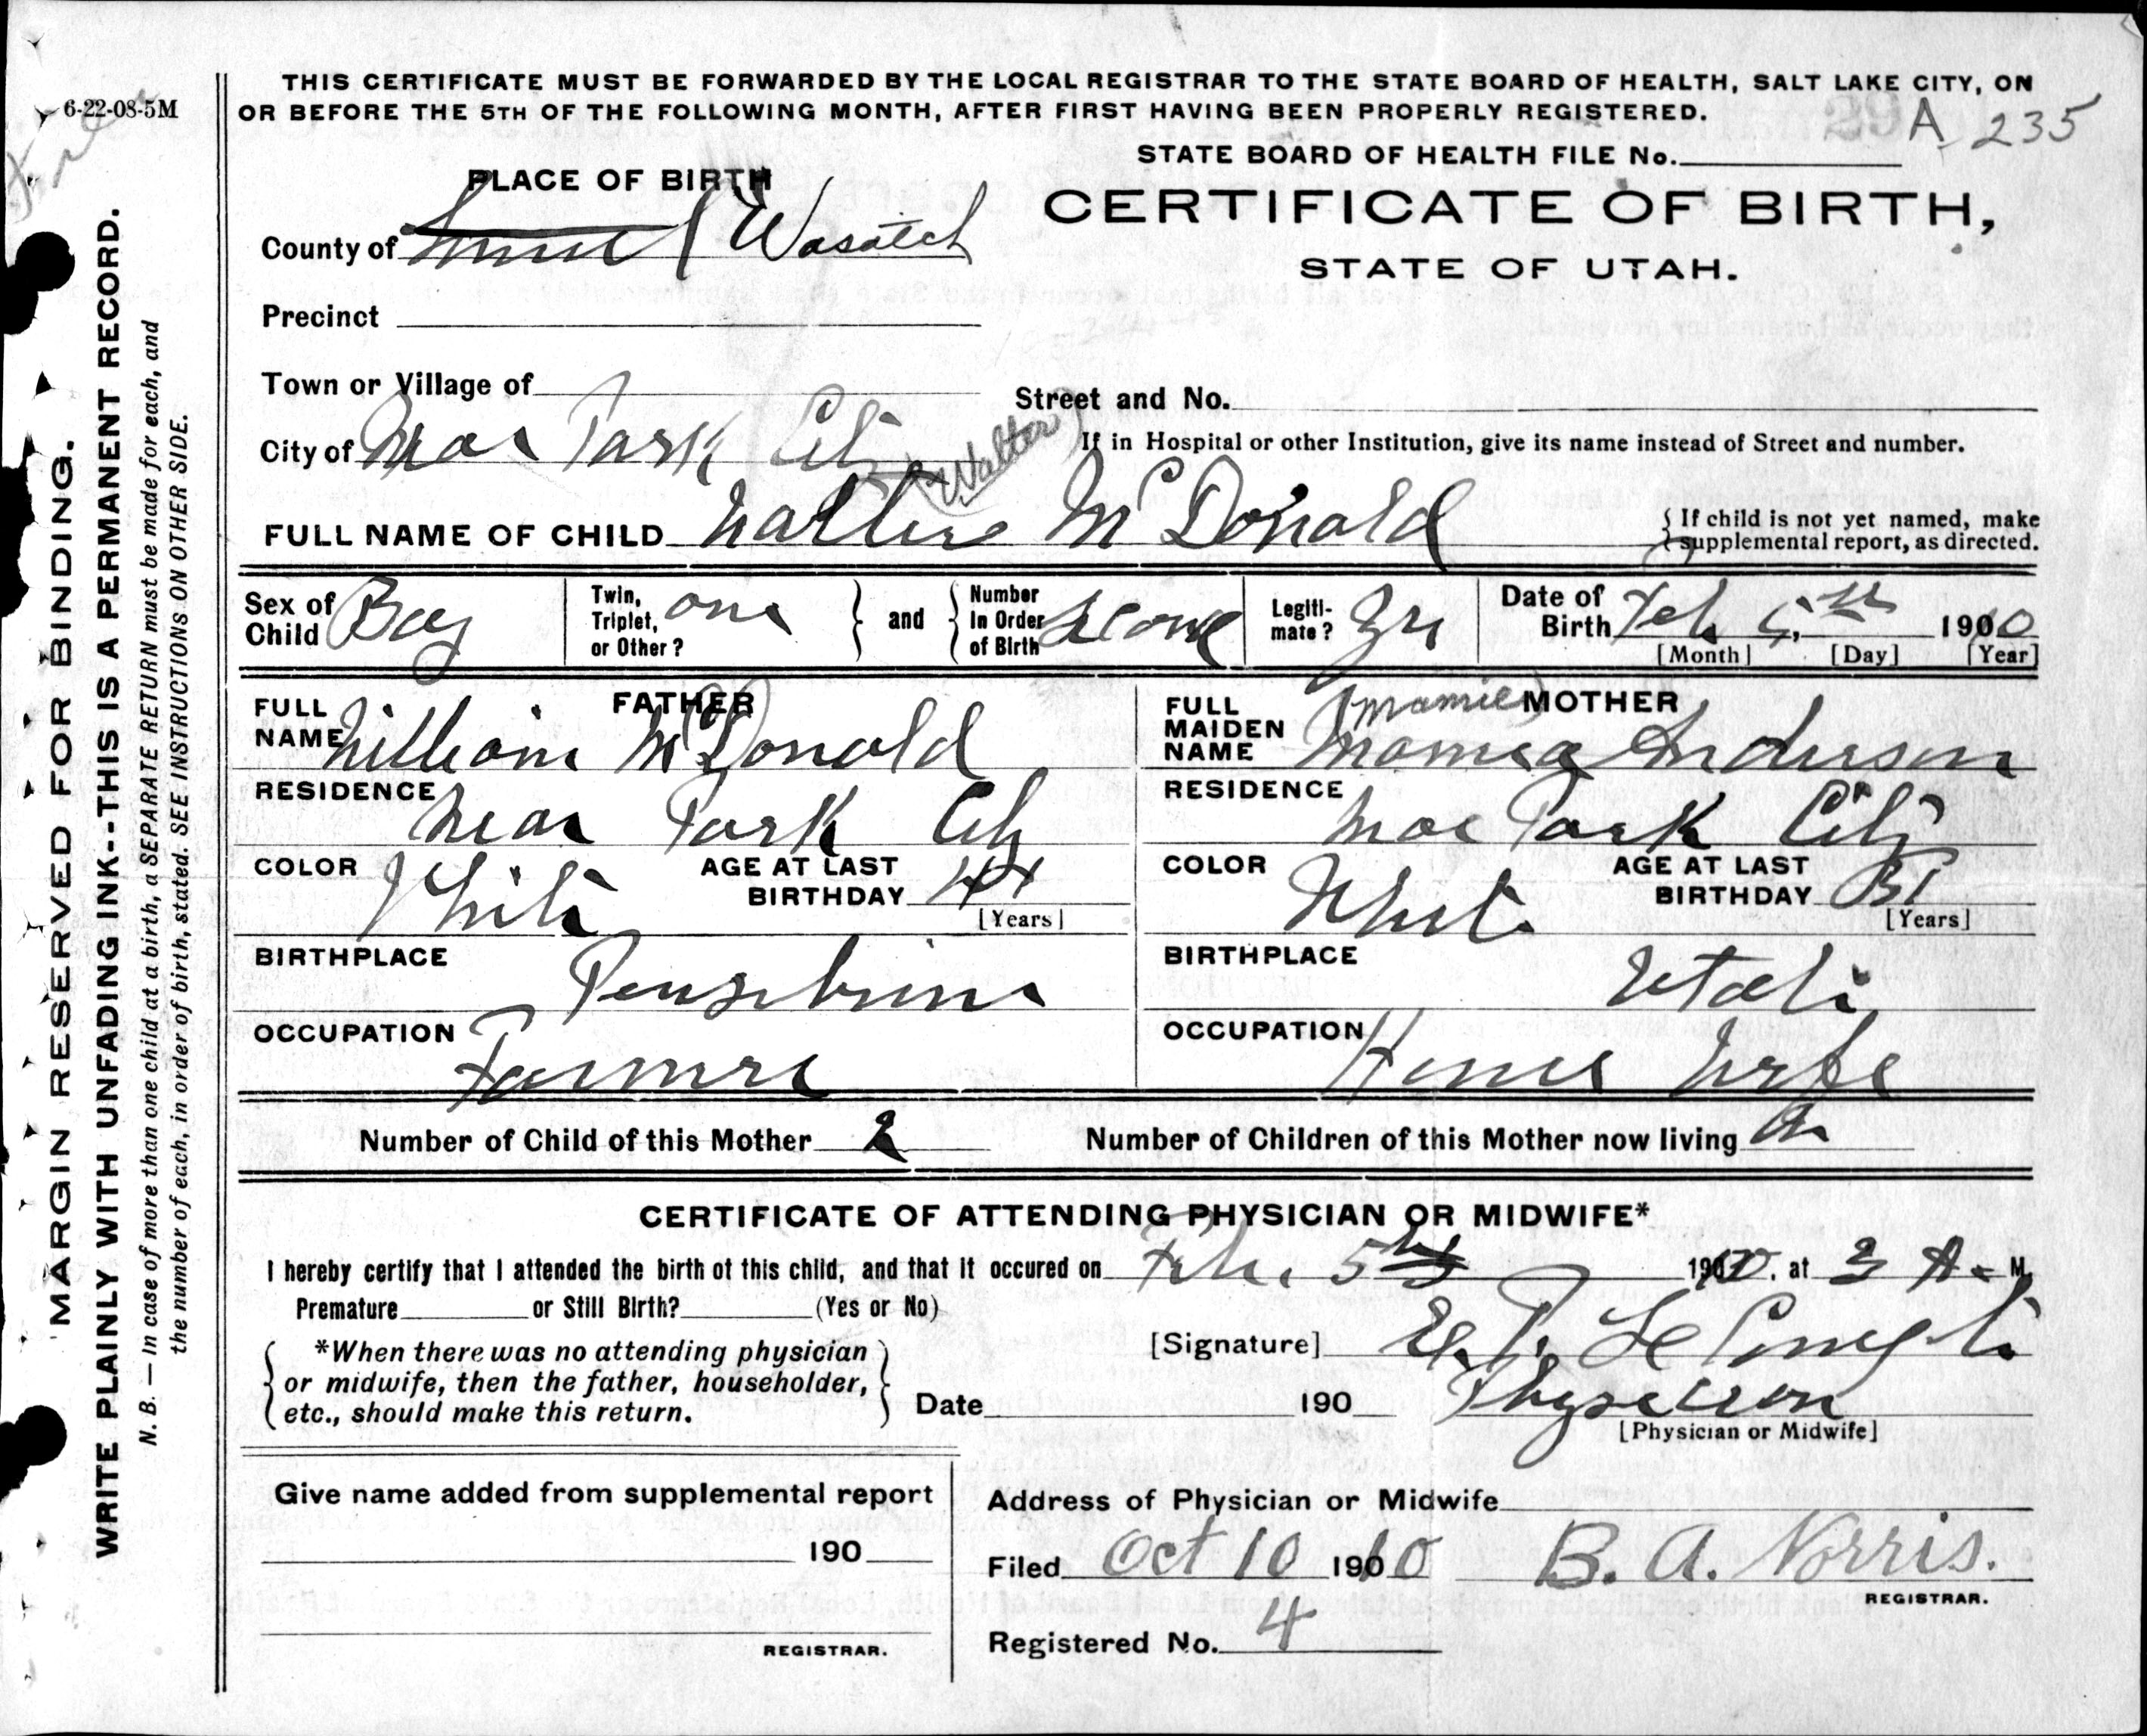 6-22-08-5M
THIS CERTIFICATE MUST BE FORWARDED BY THE LOCAL REGISTRAR TO THE STATE BOARD OF HEALTH, SALT LAKE CITY, ON
OR BEFORE THE 5TH OF THE FOLLOWING MONTH, AFTER FIRST HAVING BEEN PROPERLY REGISTERED.
A 235
STATE BOARD OF HEALTH FILE No.
PLACE OF BIRTH
CERTIFICATE OF BIRTH,
STATE OF UTAH.
County of Wasatch
Precinct
Town or Village of
Street and No.
City of Park City
If in Hospital or other Institution, give its name instead of Street and number.
(Walter)
FULL NAME OF CHILD McDonald
If child is not yet named, make supplemental report, as directed.
Sex of Child Boy
Twin, Triplet, or Other? one
and
Number In Order of Birth
Legitimate?
Date of Birth Feb 5th 1910
[Month] [Day] [Year]
FATHER
FULL NAME William McDonald
RESIDENCE Near Park City
COLOR White
AGE AT LAST BIRTHDAY
[Years]
BIRTHPLACE
OCCUPATION Farmer
MOTHER
(Mamie)
FULL MAIDEN NAME Anderson
RESIDENCE Park City
COLOR White
AGE AT LAST BIRTHDAY 31
[Years]
BIRTHPLACE Utah
OCCUPATION House Wife
Number of Child of this Mother 2
Number of Children of this Mother now living 2
CERTIFICATE OF ATTENDING PHYSICIAN OR MIDWIFE*
I hereby certify that I attended the birth of this child, and that it occured on Feb. 5th 1910, at 3 A. M.
Premature or Still Birth? (Yes or No)
*When there was no attending physician
or midwife, then the father, householder,
etc., should make this return.
[Signature]
Date 190
Physician
[Physician or Midwife]
Give name added from supplemental report
190
REGISTRAR.
Address of Physician or Midwife
Filed Oct 10 1910 B. A. Norris.
REGISTRAR.
Registered No. 4
MARGIN RESERVED FOR BINDING.
WRITE PLAINLY WITH UNFADING INK--THIS IS A PERMANENT RECORD.
N. B. — In case of more than one child at a birth, a SEPARATE RETURN must be made for each, and
the number of each, in order of birth, stated. SEE INSTRUCTIONS ON OTHER SIDE.